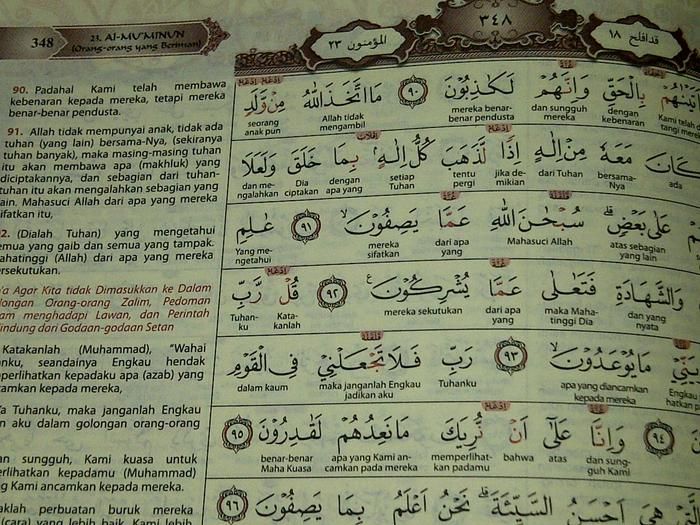 348
23. AL-MU'MINUN
(Orang-orang yang Beriman)
المؤمنون ٢٣
٣٤٨
قد افلح ١٨
90. Padahal Kami telah membawa
kebenaran kepada mereka, tetapi mereka
benar-benar pendusta.
91. Allah tidak mempunyai anak, tidak ada
tuhan (yang lain) bersama-Nya, (sekiranya
tuhan banyak), maka masing-masing tuhan
itu akan membawa apa (makhluk) yang
diciptakannya, dan sebagian dari tuhan-
tuhan itu akan mengalahkan sebagian yang
lain. Mahasuci Allah dari apa yang mereka
sifatkan itu,
(Dialah Tuhan) yang mengetahui
semua yang gaib dan semua yang tampak.
Mahatinggi (Allah) dari apa yang mereka
persekutukan.
Agar Kita tidak Dimasukkan ke Dalam
Golongan Orang-orang Zalim, Pedoman
dalam menghadapi Lawan, dan Perintah
dari Godaan-godaan Setan
Katakanlah (Muhammad), "Wahai
seandainya Engkau hendak
memperlihatkan kepadaku apa (azab) yang
diancamkan kepada mereka,
Tuhanku, maka janganlah Engkau
aku dalam golongan orang-orang
sungguh, Kami kuasa untuk
memperlihatkan kepadamu (Muhammad)
yang Kami ancamkan kepada mereka.
perbuatan buruk mereka
(cara) yang lebih baik. Kami lebih
بِالْحَقِّ وَاِنَّهُمْ لَكٰذِبُوْنَ ٩٠ مَا اتَّخَذَ اللّٰهُ مِنْ وَّلَدٍ
Kami telah dengan kebenaran dan sungguh mereka mereka benar-benar pendusta Allah tidak mengambil seorang anak pun
كَانَ مَعَهٗ مِنْ اِلٰهٍ اِذًا لَّذَهَبَ كُلُّ اِلٰهٍۢ بِمَا خَلَقَ وَلَعَلَا
ada bersama-Nya dari Tuhan jika demikian tentu pergi setiap Tuhan dengan apa yang Dia ciptakan dan mengalahkan
عَلٰى بَعْضٍۗ سُبْحٰنَ اللّٰهِ عَمَّا يَصِفُوْنَۙ ٩١ عٰلِمِ
atas sebagian yang lain Mahasuci Allah dari apa yang mereka sifatkan Yang mengetahui
وَالشَّهَادَةِ فَتَعٰلٰى عَمَّا يُشْرِكُوْنَ ࣖ ٩٢ قُلْ رَّبِّ
dan yang nyata maka Maha-Tinggi Dia dari apa yang mereka sekutukan Katakanlah Tuhanku
مَا يُوْعَدُوْنَۙ ٩٣ رَبِّ فَلَا تَجْعَلْنِيْ فِى الْقَوْمِ
apa yang diancamkan kepada mereka Tuhanku maka janganlah Engkau jadikan aku dalam kaum
٩٤ وَاِنَّا عَلٰٓى اَنْ نُّرِيَكَ مَا نَعِدُهُمْ لَقٰدِرُوْنَ ٩٥
dan sungguh Kami atas bahwa memperlihatkan padamu apa yang Kami ancamkan pada mereka benar-benar Maha Kuasa
هِيَ اَحْسَنُ السَّيِّئَةَۗ نَحْنُ اَعْلَمُ بِمَا يَصِفُوْنَ ٩٦